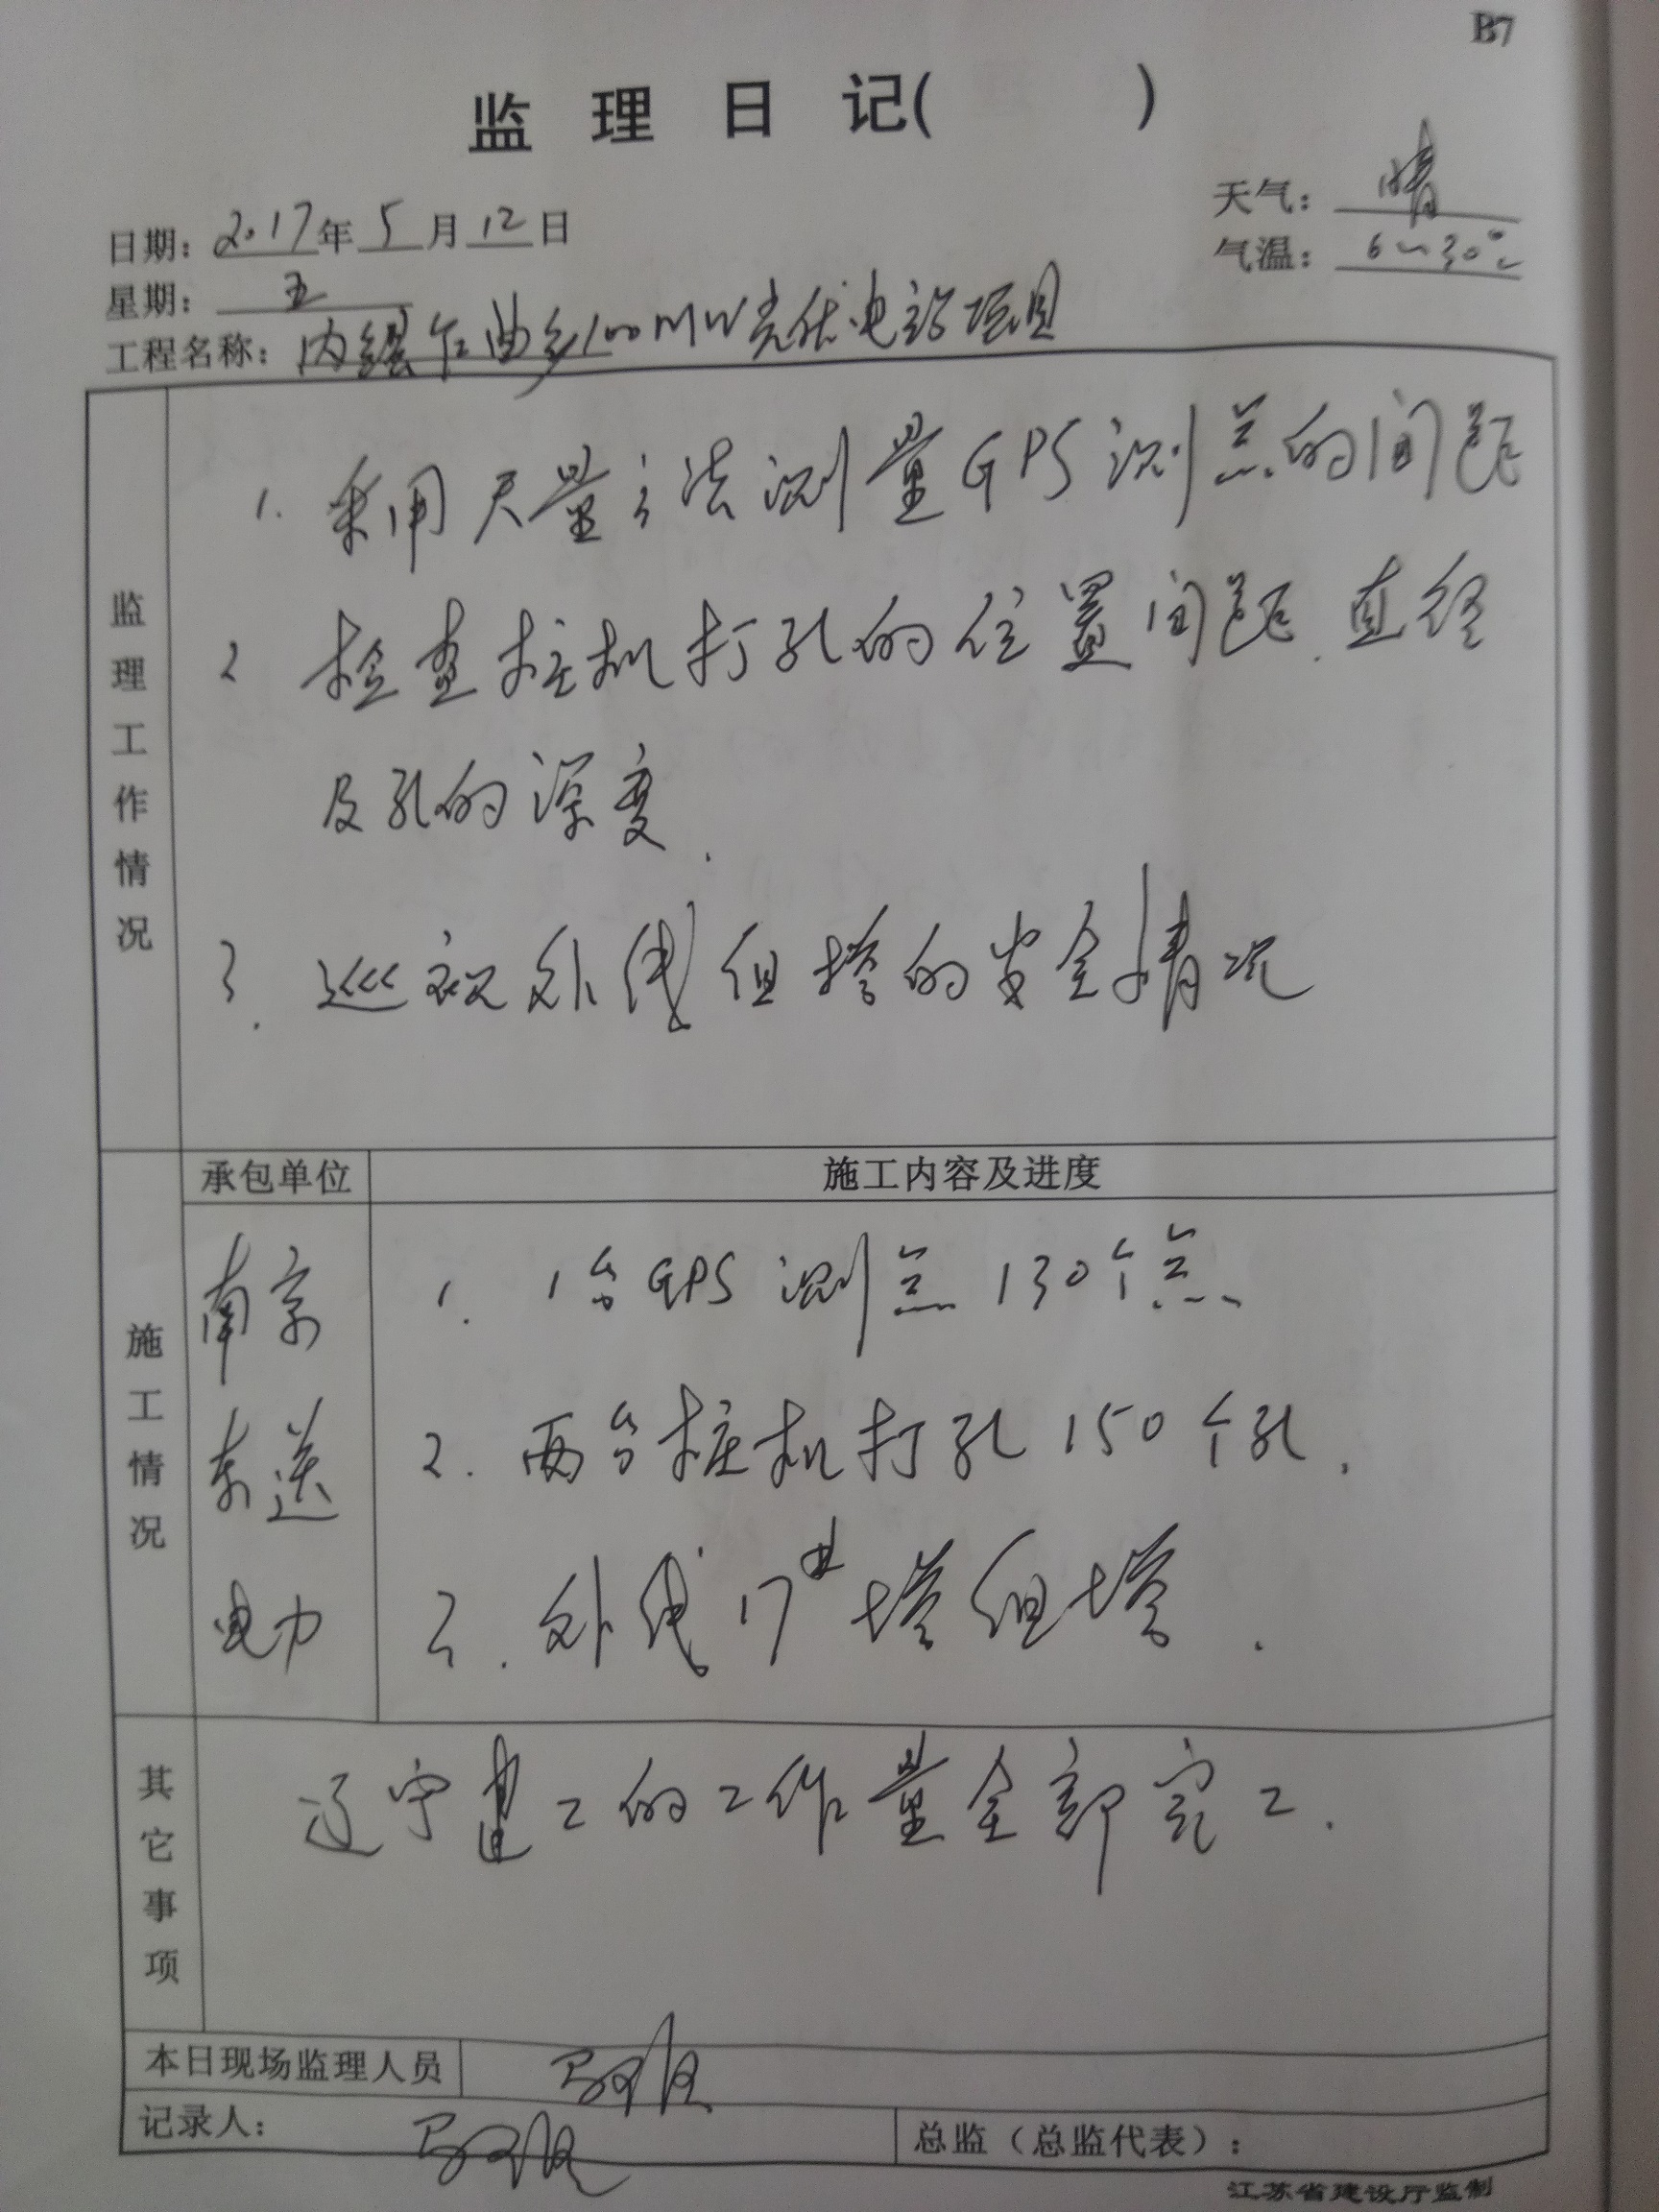 B7
监理日记( )
日期：2017年5月12日
天气：晴
星期：五
气温：6~30℃
工程名称：内乡100MW光伏电站项目
监理工作情况
1. 采用尺量方法测量GPS测点的间距
2 检查桩机打孔的位置间距.直径
及孔的深度.
3. 巡视外线组塔的安全情况
施工情况
承包单位
施工内容及进度
南京
东送
电力
1. 1台GPS测点130个点
2. 两台桩机打孔150个孔.
3. 外线17#塔组塔.
其它事项
辽宁建工的工作量全部完工.
本日现场监理人员
记录人：
总监（总监代表）：
江苏省建设厅监制